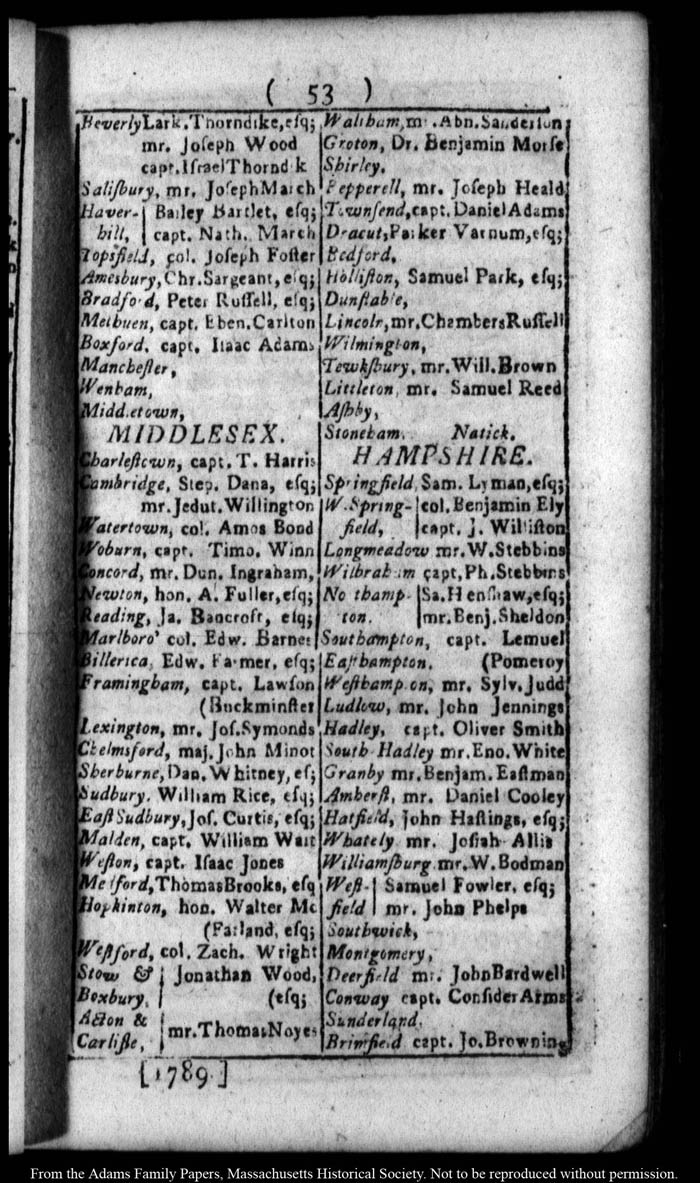 ( 53 )
Beverly Lark. Thorndike, esq;
mr. Joseph Wood
capt. Israel Thorndik
Salisbury, mr. Joseph March
Haver- | Bailey Bartlet, esq;
hill, | capt. Nath. March
Topsfield, col. Joseph Foster
Amesbury, Chr. Sargeant, esq;
Bradford, Peter Russell, esq;
Methuen, capt. Eben. Carlton
Boxford, capt. Isaac Adams
Manchester,
Wenham,
Middletown,
MIDDLESEX.
Charlestown, capt. T. Harris
Cambridge, Step. Dana, esq;
mr. Jedut. Willington
Watertown, col. Amos Bond
Woburn, capt. Timo. Winn
Concord, mr. Dun. Ingraham,
Newton, hon. A. Fuller, esq;
Reading, Ja. Bancroft, esq;
Marlboro' col. Edw. Barnes
Billerica, Edw. Farmer, esq;
Framingham, capt. Lawson
(Buckminster
Lexington, mr. Jos. Symonds
Chelmsford, maj. John Minot
Sherburne, Dan. Whitney, es;
Sudbury. William Rice, esq;
East Sudbury, Jos. Curtis, esq;
Malden, capt. William Wait
Weston, capt. Isaac Jones
Medford, Thomas Brooks, esq
Hopkinton, hon. Walter Mc
(Farland, esq;
Westford, col. Zach. Wright
Stow & | Jonathan Wood,
Boxbury, | (esq;
Acton &
| mr. Thomas Noyes
Carlisle,
Waltham, mr. Abn. Sanderson
Groton, Dr. Benjamin Morse
Shirley,
Pepperell, mr. Joseph Heald
Townsend, capt. Daniel Adams
Dracut, Parker Varnum, esq;
Bedford,
Holliston, Samuel Park, esq;
Dunstable,
Lincoln, mr. Chambers Russell
Wilmington,
Tewksbury, mr. Will. Brown
Littleton, mr. Samuel Reed
Ashby,
Stoneham. Natick.
HAMPSHIRE.
Springfield, Sam. Lyman, esq;
W. Spring- | col. Benjamin Ely
field, | capt. J. Williston
Longmeadow mr. W. Stebbins
Wilbraham capt. Ph. Stebbins
Nothamp- | Sa. Henshaw, esq;
ton. | mr. Benj. Sheldon
Southampton, capt. Lemuel
Easthampton. (Pomeroy
Westhampton, mr. Sylv. Judd
Ludlow, mr. John Jennings
Hadley, capt. Oliver Smith
South Hadley mr. Eno. White
Granby mr. Benjam. Eastman
Amherst, mr. Daniel Cooley
Hatfield, John Hastings, esq;
Whately mr. Josiah Allis
Williamsburg mr. W. Bodman
West- | Samuel Fowler, esq;
field | mr. John Phelps
Southwick,
Montgomery,
Deerfield mr. John Bardwell
Conway capt. Consider Arms
Sunderland.
Brimfield capt. Jo. Browning
[1789]
From the Adams Family Papers, Massachusetts Historical Society. Not to be reproduced without permission.